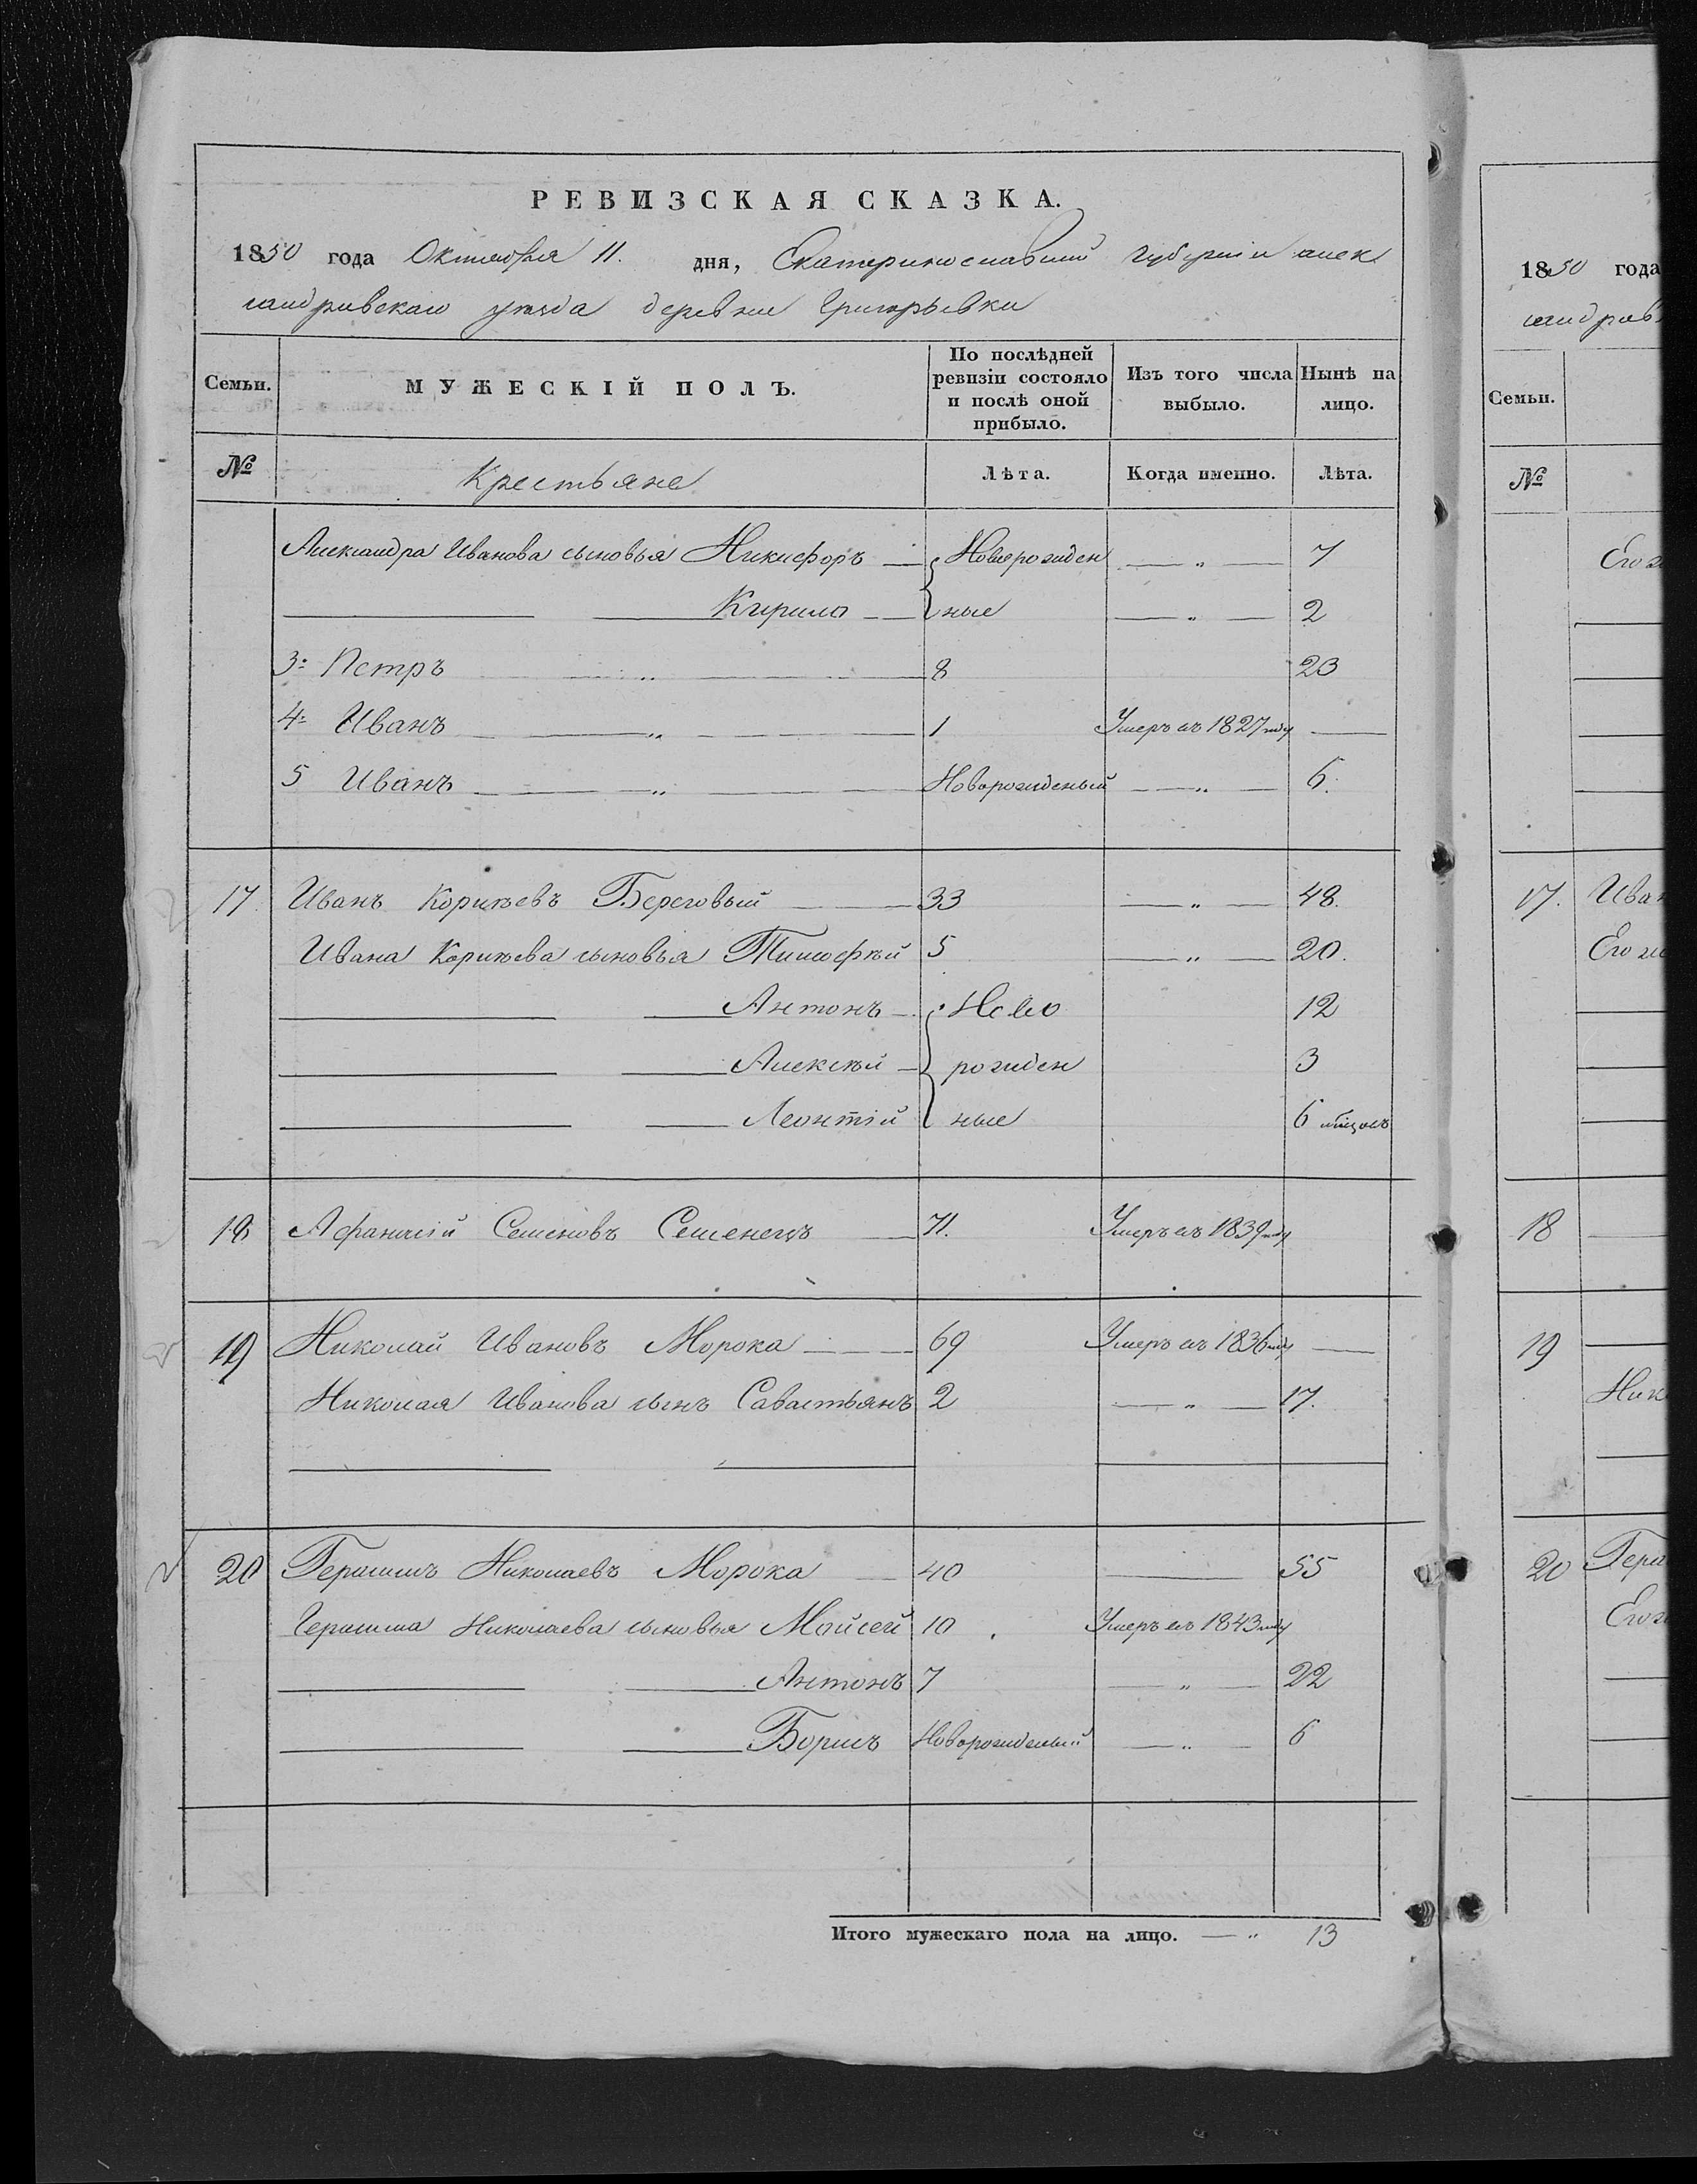 РЕВИЗСКАЯ СКАЗКА.
1850 года Октября 11. дня, Екатеринославской губерніи алек
сандровскаго уезда деревни Григорьевки
Семьи. МУЖЕСКІЙ ПОЛЪ. По послѣдней ревизіи состояло и послѣ оной прибыло. Изъ того числа выбыло. Нынѣ на лицо.
№ Крестьяне Лѣта. Когда именно. Лѣта.
Александра Иванова сыновья Никифоръ Новорожден — „ — 7
Кирило ные — „ — 2
3: Петръ „ 8 23
4: Иванъ „ 1 Умеръ въ 1827 году
5 Иванъ „ Новорожденый — „ — 6.
17 Иванъ Корнѣевъ Береговый 33 — „ — 48.
Ивана Корнѣева сыновья Тимофѣй 5 — „ — 20.
Антонъ Ново 12
Алексѣй рожден 3
Леонтій ные 6 мѣсяцовъ
18 Афанасій Семеновъ Семенецъ 71. Умеръ въ 1839 году
19 Николай Ивановъ Морока 69 Умеръ въ 1836 году
Николая Иванова сынъ Савастьянъ 2 — „ — 17.
20 Герасимъ Николаевъ Морока 40 55
Герасима Николаева сыновья Мойсей 10 Умеръ въ 1843 году
Антонъ 7 — „ — 22
Борисъ Новорожденый — „ — 6
Итого мужескаго пола на лицо. — „ 13
1850 года
сандров
Семьи.
№
Его ж
17. Иван
Его же
18
19
Ник
20 Гера
Его ж